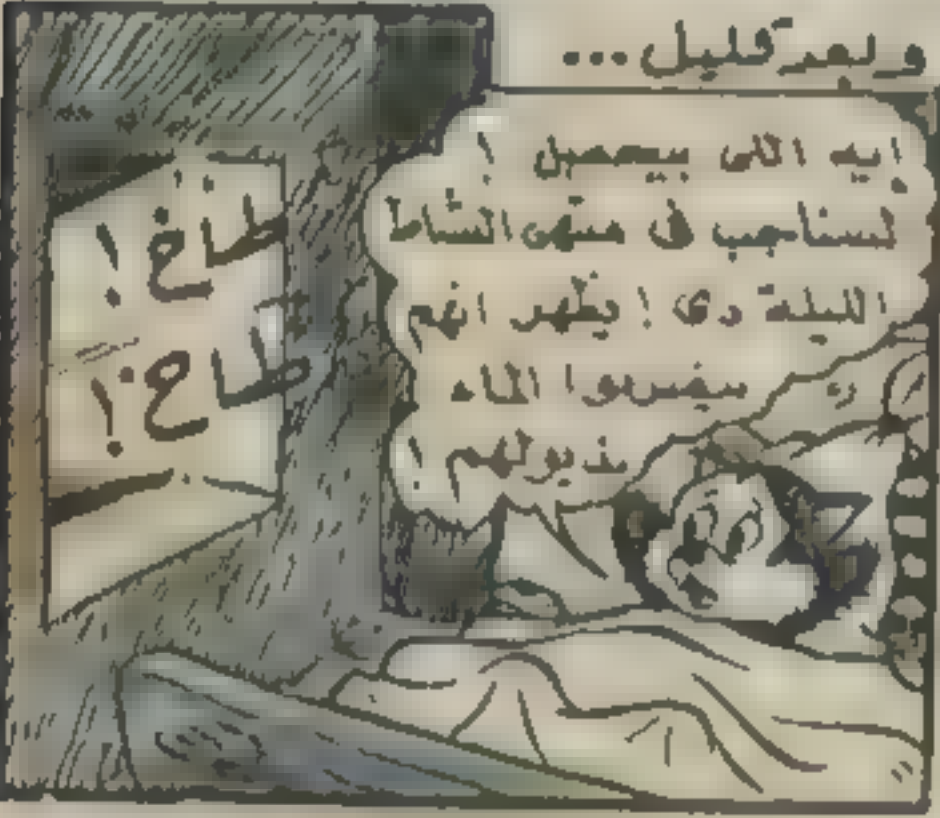 وبعد قليل...
إيه اللى بيحصل !
السناجب فى منتهى النشاط
الليلة دى ! يظهر انهم
الماء
بذيولهم !
طاخ !
طاخ !